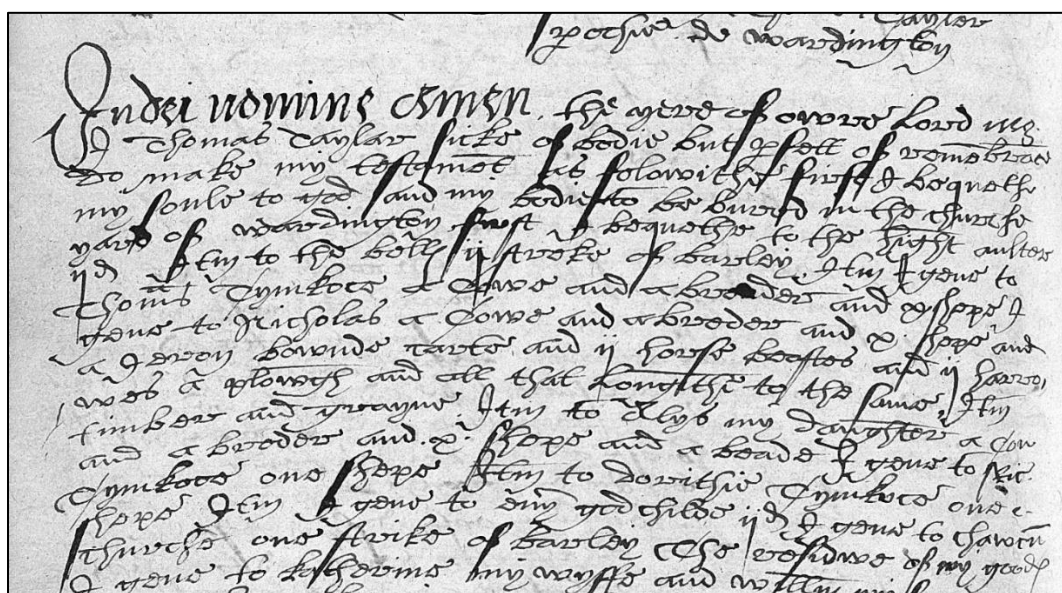 Tayler
pochie de wardington
In dei nomine Amen the yere of owre lord
I Thomas Taylar sicke of bodie but pfett of remebrace
do make my testamet as folowithe first I bequethe
my soule to god and my bodie to be buried in the churche
yarde of wardington first I bequethe to the hight aulter
ijd Itm to the bell ij streke of barley Itm I geve to
Thoms Tymkoce a Cowe and a breeder and x shepe I
geve to Nicholas a Cowe and a breder and x shepe and
a Ieron bownde carte and ij horse beastes and ij harro,
wes a plowgh and all that longithe to the same, Itm
timber and grayne Itm to Alys my daughter a Cow
and a breder and x shepe and a beade I geve to Ric
Tymkoce one shepe Itm to dorithie Tymkoce one
shepe Itm I geve to evy godchilde ijd I geve to
churche one strike of barley The residwe of my good
I geve to katherine my wyffe and willm my